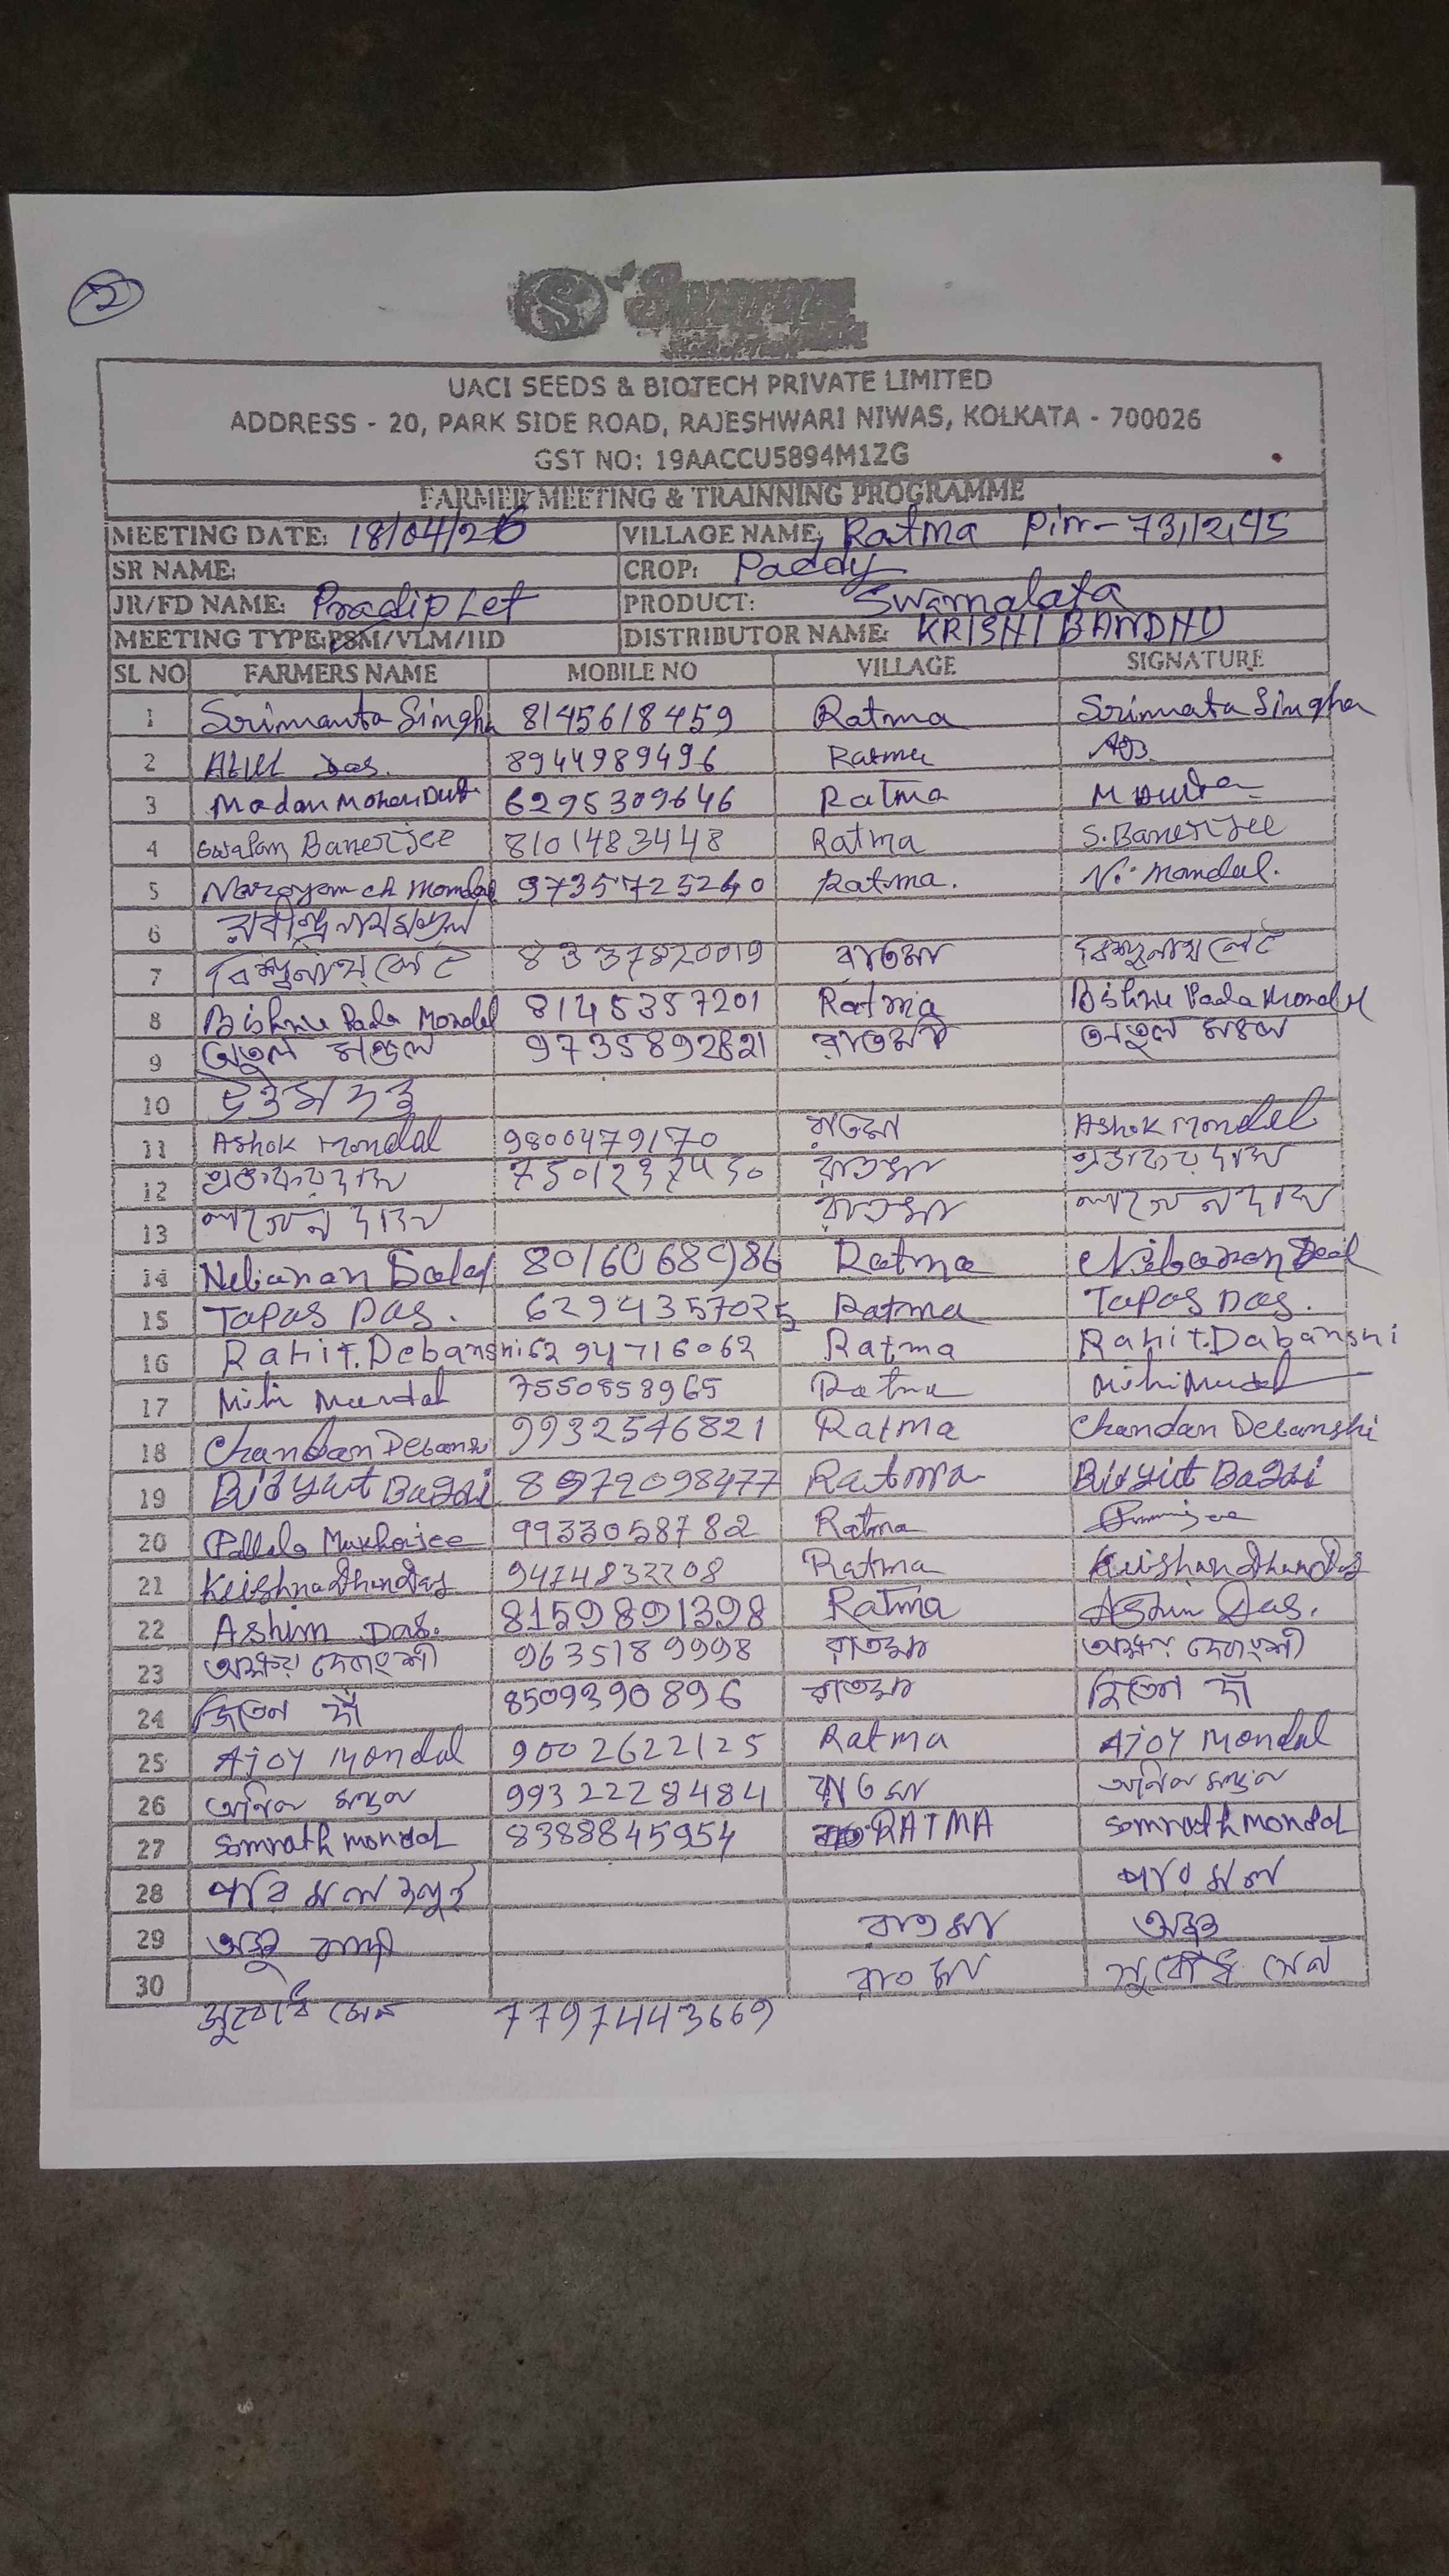 2
UACI SEEDS & BIOTECH PRIVATE LIMITED
ADDRESS - 20, PARK SIDE ROAD, RAJESHWARI NIWAS, KOLKATA - 700026
GST NO: 19AACCU5894M1ZG
FARMER MEETING & TRAINNING PROGRAMME
MEETING DATE: 18/04/26 VILLAGE NAME: Ratma Pin-731245
SR NAME: CROP: Paddy
JR/FD NAME: Pradip Let PRODUCT: Swarnalata
MEETING TYPE: PSM/VLM/IID DISTRIBUTOR NAME: KRISHI BANDHU
SL NO FARMERS NAME MOBILE NO VILLAGE SIGNATURE
1 Srimanta Singha 8145618459 Ratma Srimata Singha
2 Das. 8944989496 Ratma
3 Madan Mohan Dutta 6295309646 Ratma M Dutta
4 Swapan Banerjee 8101483448 Ratma S. Banerjee
5 Narayan ch Mondal 9735725240 Ratma. N. Mondal.
6 রবীন্দ্রনাথ মণ্ডল
7 বিশ্বনাথ লেট 8337820019 রাতমা বিশ্বনাথ লেট
8 Bishnu Pada Mondal 8145357201 Ratma Bishnu Pada Mondal
9 অতুল মণ্ডল 9735892821 রাতমা অতুল মণ্ডল
10 উত্তম দত্ত
11 Ashok Mondal 9800479170 রাতমা Ashok Mondal
12 দাস রাতমা দাস
13 দাস রাতমা দাস
14 8016068986 Ratma
15 Tapas Das. 6294357025 Ratma Tapas Das.
16 Rahit. Debanshi 6294716062 Ratma Rahit. Dabanshi
17 7550858965 Ratma
18 Chandan Debanshi 9932546821 Ratma Chandan Debanshi
19 Bidyut Bagdi 8972098477 Ratma Bidyut Bagdi
20 Mukherjee 9933058782 Ratma
21 Krishnadhan Das 9474832208 Ratma Krishandhan Das
22 Ashim Das. 8159891398 Ratma Ashim Das.
23 অক্ষয় দেবাংশী 9635189998 রাতমা অক্ষয় দেবাংশী
24 জিতেন দাঁ 8509390896 রাতমা জিতেন দাঁ
25 Ajoy Mondal 9002622125 Ratma Ajoy Mondal
26 অনিল মন্ডল 9932228484 রাতমা অনিল মন্ডল
27 Somnath mondal 8388845954 RATMA Somnath mondal
28 পরিমল পরিমল
29 রাতমা
30 রাতমা সুবোধ সেন
সুবোধ সেন 7797443669